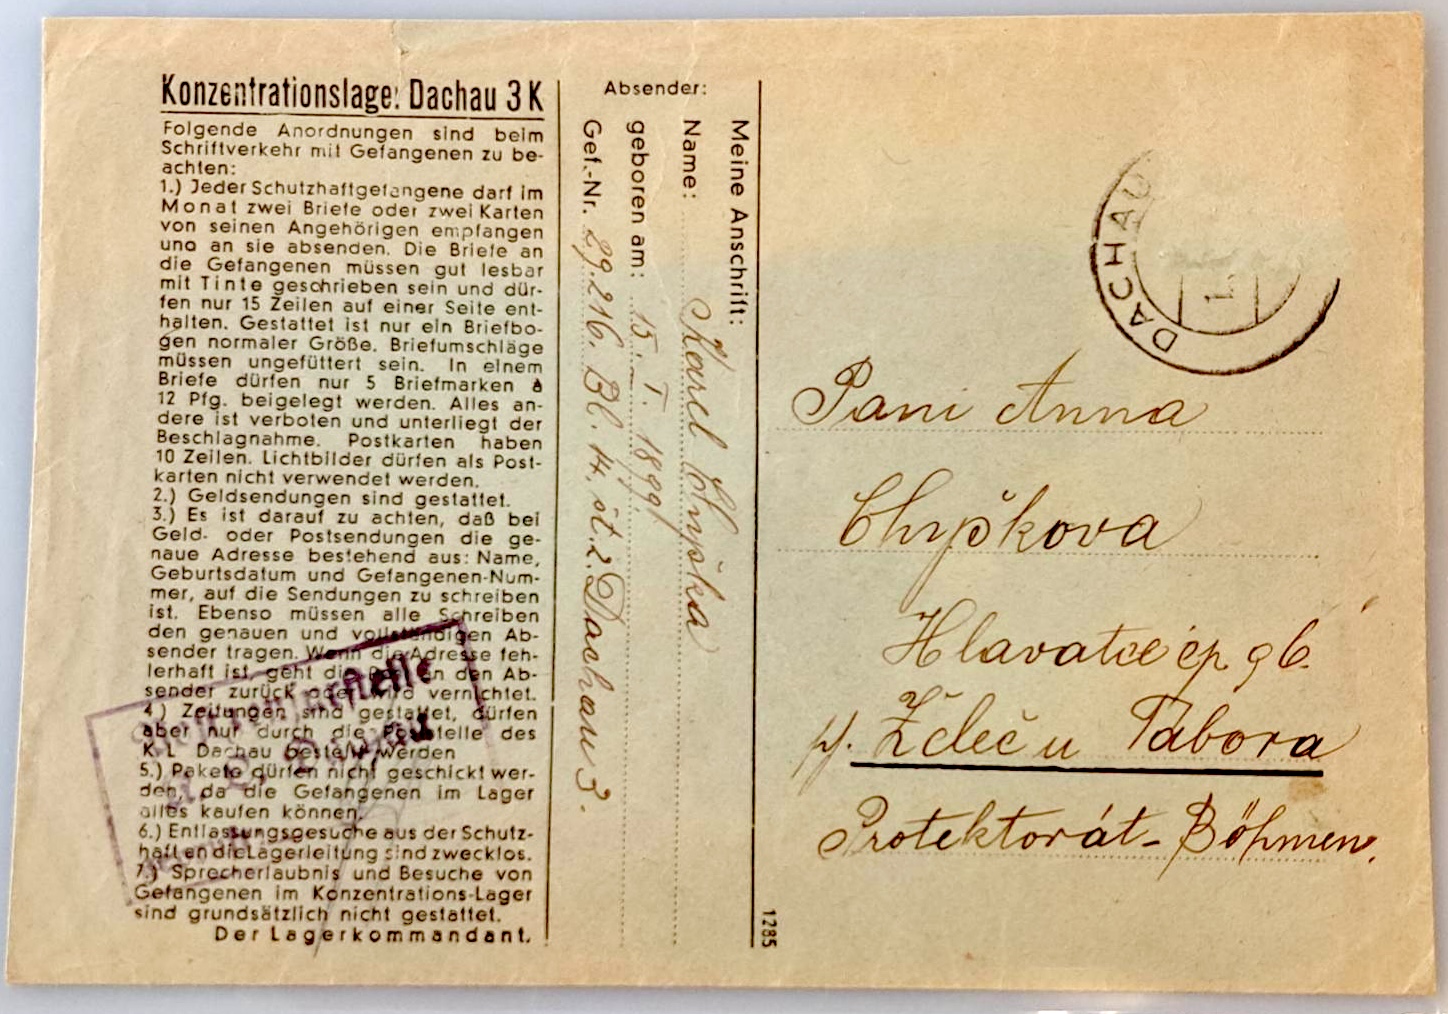 Konzentrationslager Dachau 3 K
Folgende Anordnungen sind beim
Schriftverkehr mit Gefangenen zu be-
achten:
1.) Jeder Schutzhaftgefangene darf im
Monat zwei Briefe oder zwei Karten
von seinen Angehörigen empfangen
und an sie absenden. Die Briefe an
die Gefangenen müssen gut lesbar
mit Tinte geschrieben sein und dür-
fen nur 15 Zeilen auf einer Seite ent-
halten. Gestattet ist nur ein Briefbo-
gen normaler Größe. Briefumschläge
müssen ungefüttert sein. In einem
Briefe dürfen nur 5 Briefmarken à
12 Pfg. beigelegt werden. Alles an-
dere ist verboten und unterliegt der
Beschlagnahme. Postkarten haben
10 Zeilen. Lichtbilder dürfen als Post-
karten nicht verwendet werden.
2.) Geldsendungen sind gestattet.
3.) Es ist darauf zu achten, daß bei
Geld- oder Postsendungen die ge-
naue Adresse bestehend aus: Name,
Geburtsdatum und Gefangenen-Num-
mer, auf die Sendungen zu schreiben
ist. Ebenso müssen alle Schreiben
den genauen und vollständigen Ab-
sender tragen. Wenn die Adresse feh-
lerhaft ist, geht die Post an den Ab-
sender zurück oder wird vernichtet.
4.) Zeitungen sind gestattet, dürfen
aber nur durch die Poststelle des
K. L. Dachau bestellt werden
5.) Pakete dürfen nicht geschickt wer-
den, da die Gefangenen im Lager
alles kaufen können.
6.) Entlassungsgesuche aus der Schutz-
haft an die Lagerleitung sind zwecklos.
7.) Sprecherlaubnis und Besuche von
Gefangenen im Konzentrations-Lager
sind grundsätzlich nicht gestattet.
Der Lagerkommandant.
Absender:
Meine Anschrift:
Name: Karel Chyška
geboren am: 15. I. 1899
Gef.-Nr. 29.216. Bl. 14. st. 2. Dachau 3.
1285
DACHAU
Pani Anna
Chyškova
Hlavatce čp. 96.
p. Zdeč u Tabora
Protektorát-Böhmen.